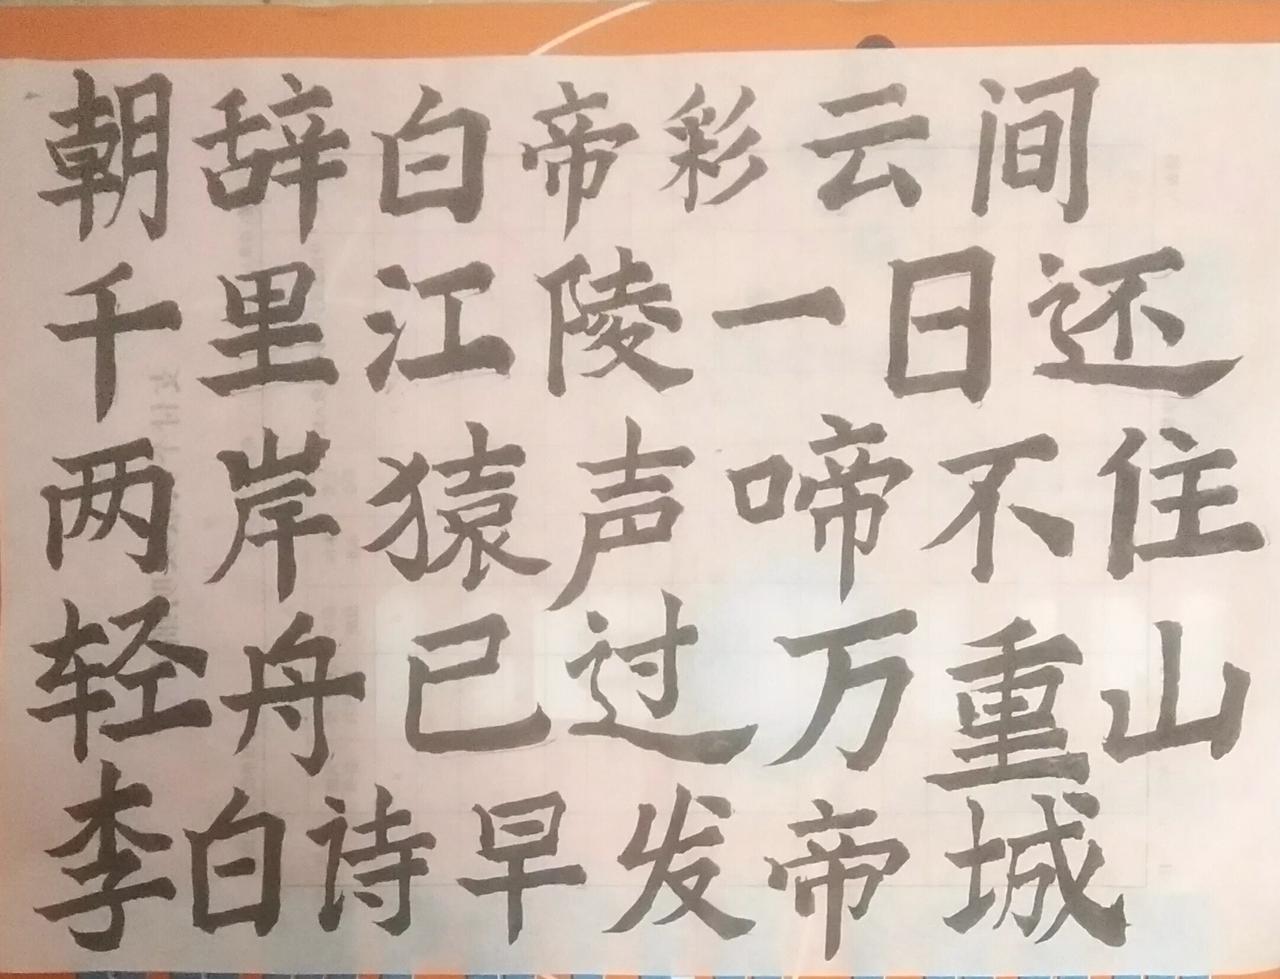 朝辞白帝彩云间
千里江陵一日还
两岸猿声啼不住
轻舟已过万重山
李白诗早发帝城